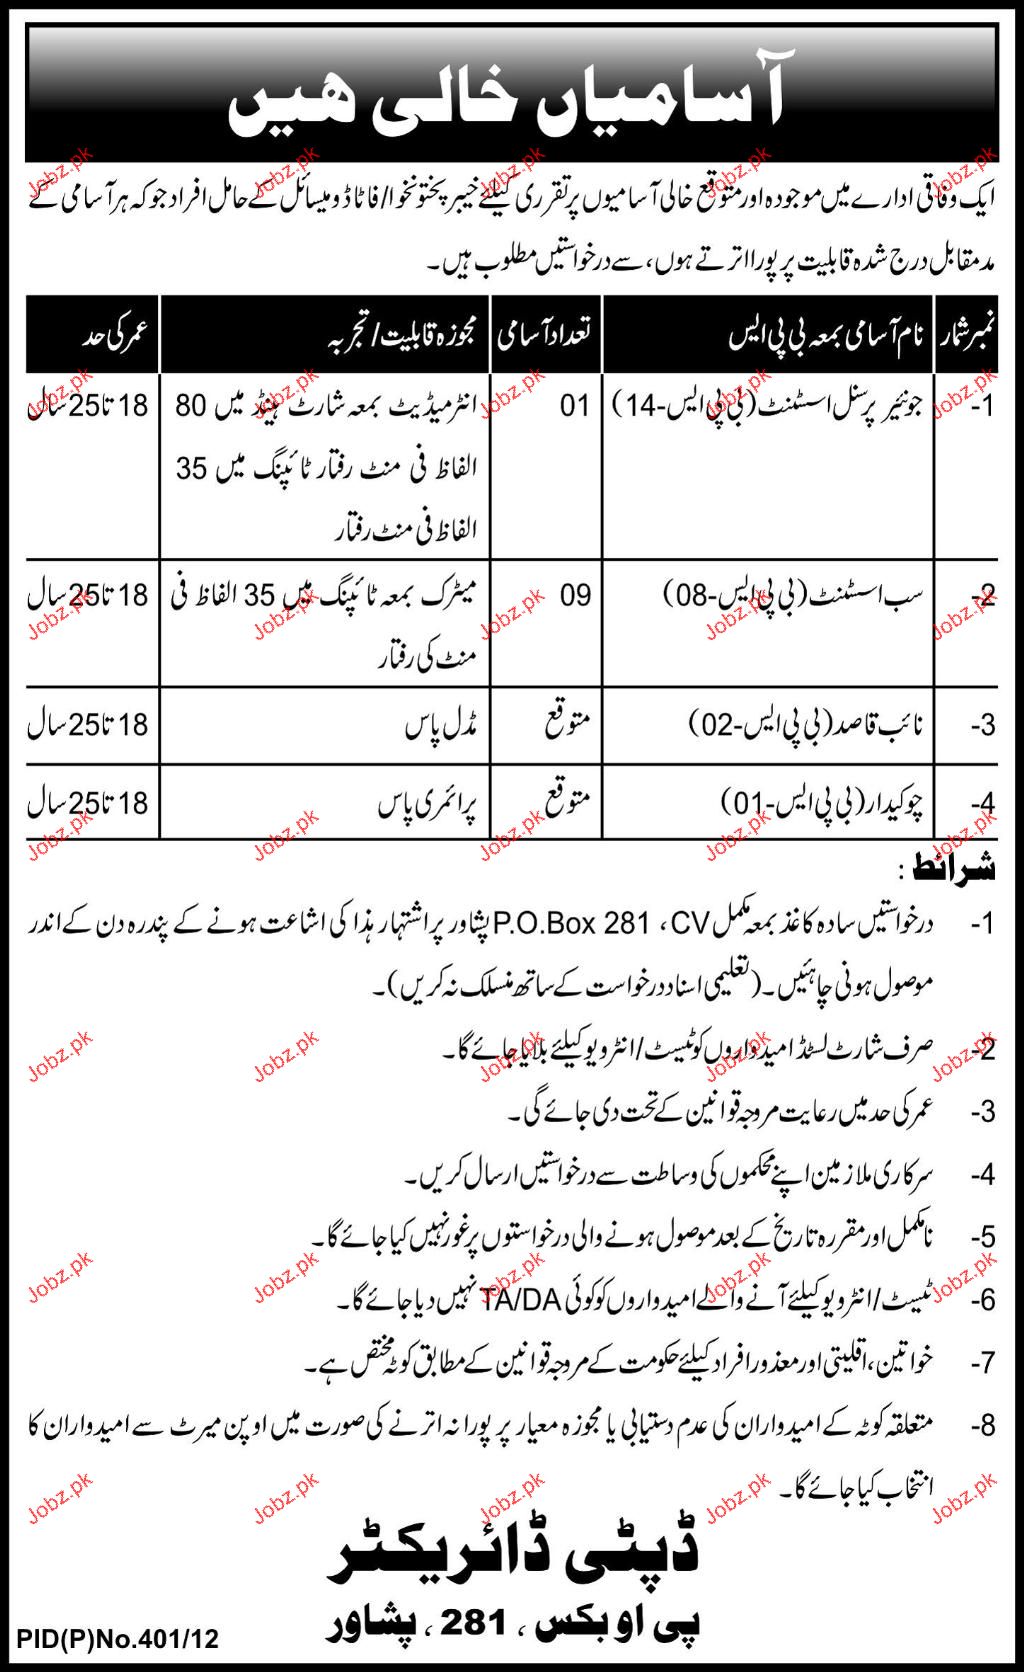 آسامیاں خالی ھیں
ایک وفاقی ادارے میں موجودہ اور متوقع خالی آسامیوں پر تقرری کیلئے خیبر پختونخوا/فاٹا ڈومیسائل کے حامل افراد جو کہ ہر آسامی کے
مدمقابل درج شدہ قابلیت پر پورا اترتے ہوں، سے درخواستیں مطلوب ہیں۔
نمبر شمار نام آسامی بمعہ بی پی ایس تعداد آسامی مجوزہ قابلیت/تجربہ عمر کی حد
1- جونئیر پرسنل اسسٹنٹ (بی پی ایس-14) 01 انٹرمیڈیٹ بمعہ شارٹ ہینڈ میں 80 18 تا 25 سال
الفاظ فی منٹ رفتار ٹائپنگ میں 35
الفاظ فی منٹ رفتار
2- سب اسسٹنٹ (بی پی ایس-08) 09 میٹرک بمعہ ٹائپنگ میں 35 الفاظ فی 18 تا 25 سال
منٹ کی رفتار
3- نائب قاصد (بی پی ایس-02) متوقع مڈل پاس 18 تا 25 سال
4- چوکیدار (بی پی ایس-01) متوقع پرائمری پاس 18 تا 25 سال
شرائط :
1- درخواستیں سادہ کاغذ بمعہ مکمل CV ، P.O.Box 281 پشاور پر اشتہار ہذا کی اشاعت ہونے کے پندرہ دن کے اندر
موصول ہونی چاہئیں۔ (تعلیمی اسناد درخواست کے ساتھ منسلک نہ کریں)۔
2- صرف شارٹ لسٹڈ امیدواروں کو ٹیسٹ/انٹرویو کیلئے بلایا جائے گا۔
3- عمر کی حد میں رعایت مروجہ قوانین کے تحت دی جائے گی۔
4- سرکاری ملازمین اپنے محکموں کی وساطت سے درخواستیں ارسال کریں۔
5- نامکمل اور مقررہ تاریخ کے بعد موصول ہونے والی درخواستوں پر غور نہیں کیا جائے گا۔
6- ٹیسٹ/انٹرویو کیلئے آنے والے امیدواروں کو کوئی TA/DA نہیں دیا جائے گا۔
7- خواتین، اقلیتی اور معذور افراد کیلئے حکومت کے مروجہ قوانین کے مطابق کوٹہ مختص ہے۔
8- متعلقہ کوٹہ کے امیدواران کی عدم دستیابی یا مجوزہ معیار پر پورا نہ اترنے کی صورت میں اوپن میرٹ سے امیدواران کا
انتخاب کیا جائے گا۔
ڈپٹی ڈائریکٹر
پی او بکس ، 281 ، پشاور
PID(P)No.401/12
Jobz.pk